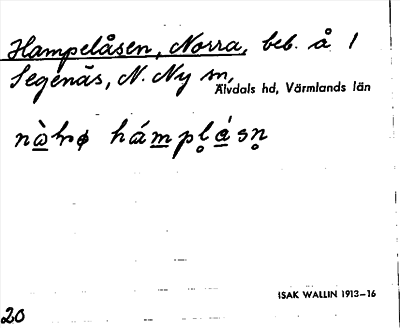 Hampelåsen, Norra, beb. å 1
Segenäs, N. Ny sn,
Älvdals hd, Värmlands län
hámpḷá̱sṇ
ISAK WALLIN 1913–16
20